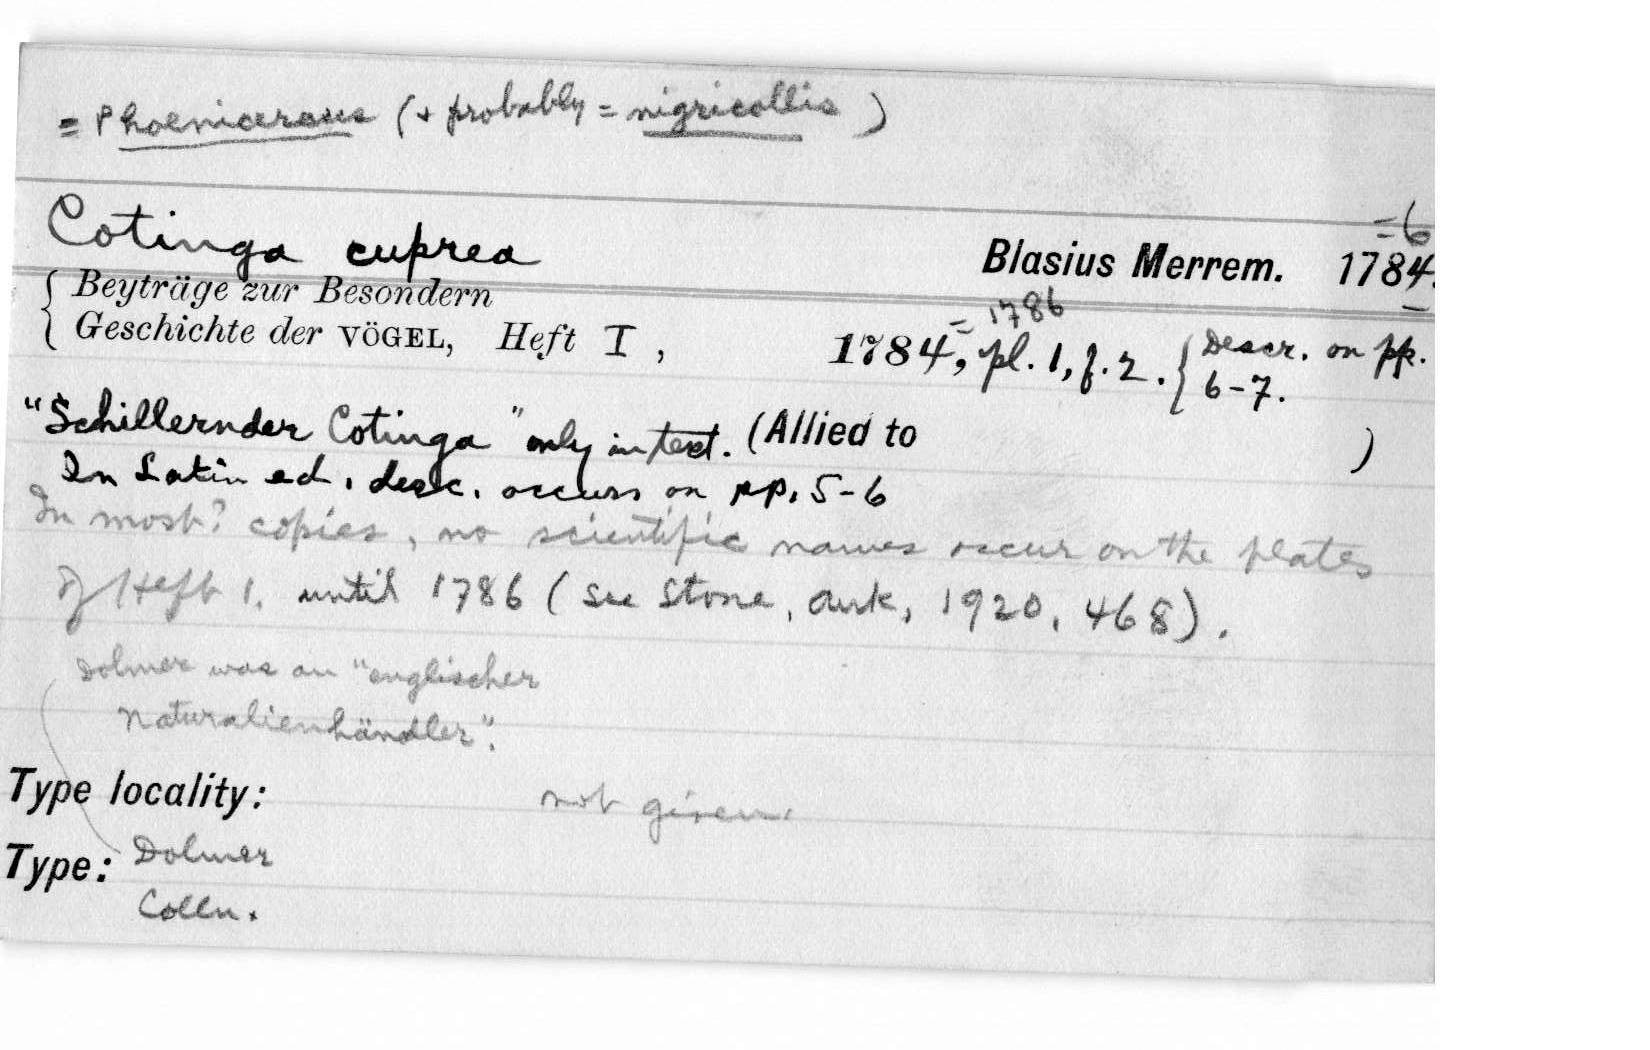 = Phoenicercus (+ probably = nigricollis)
= 6
Cotinga cuprea Blasius Merrem. 1784.
{ Beyträge zur Besondern
{ Geschichte der VÖGEL, Heft I, 1784, = 1786 pl. 1, f. 2. { Descr. on pp. 6-7.
"Schillernder Cotinga" only in text. (Allied to )
In Latin ed. desc. occurs on pp. 5-6
In most? copies, no scientific names occur on the plates
of Heft 1. until 1786 (see Stone, Auk, 1920, 468).
Dolmer was an "englischer
Naturalienhändler".
Type locality: not given.
Type: Dolmer
Colln.